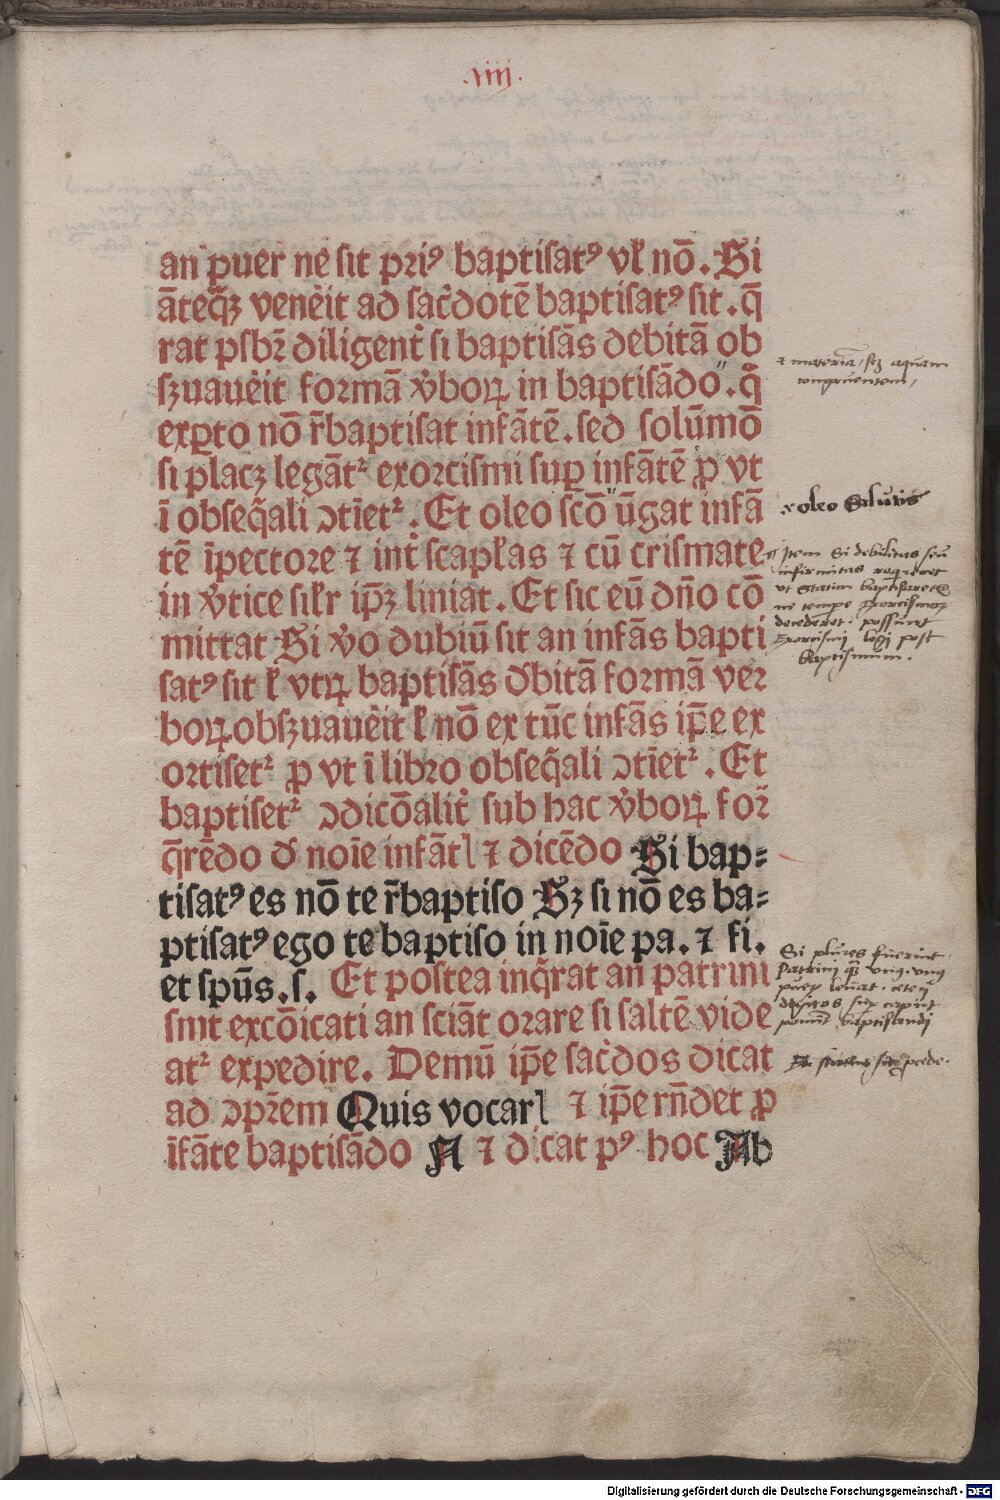 .iiii.
an puer ne sit pri⁹ baptisat⁹ vł nō. Si
āteq̄ꝫ venėit ad sac̓dotē baptisat⁹ sit. q̄
rat psbꝝ diligent̓ si baptisās debitā ob
sꝫuauėit formā v̓boꝝ in baptisādo. qͦ
exꝑto nō r̄baptisat infātē. sed solūmō
si placꝫ legāt᷑ exorcismi suꝑ infātē ꝓ vt
ī obseq̄ali ↄtīet᷑. Et oleo scō ūgat infā
tē īpectore ⁊ int̓ scapłas ⁊ cū crismate
in v̓tice silr ip̄ꝫ liniat. Et sic eū dn̄o cō
mittat Si v̓o dubiū sit an infās bapti
sat⁹ sit ł vtꝝ baptisās d̓bitā formā ver
boꝝ obsꝫuauėit ł nō ex tūc infās ip̄e ex
ortiset᷑ ꝓ vt ī libro obseq̄ali ↄtīet᷑. Et
baptiset᷑ ↄdicōalit̓ sub hac v̓boꝝ for̄
q̄rēdo d̓ noīe infātꝭ ⁊ dicēdo Si bap⸗
tisat⁹ es nō te r̄baptiso Sꝫ si nō es ba⸗
ptisat⁹ ego te baptiso in noīe pa. ⁊ fi.
et spūs. s. Et postea inq̄rat an patrini
sint excōicati an sciāt orare si saltē vide
at᷑ expedire. Demū ip̄e sac̓dos dicat
ad ↄpr̄em Quis vocarꝭ ⁊ ip̄e rn̄det ꝓ
īfāte baptisādo A ⁊ dicat p⁹ hoc Ab
⁊ materiā, scꝫ aquam
congruentem,
oleo Salutis
Item Si debilitas seu
infirmitas requireret
vt statim baptisaretur
ne tempore exorcismoꝝ
decederet. possunt
Exorcismi legi post
baptismum.
Si plures fuerint
Patrini
baptisandi
Digitalisierung gefördert durch die Deutsche Forschungsgemeinschaft - DFG